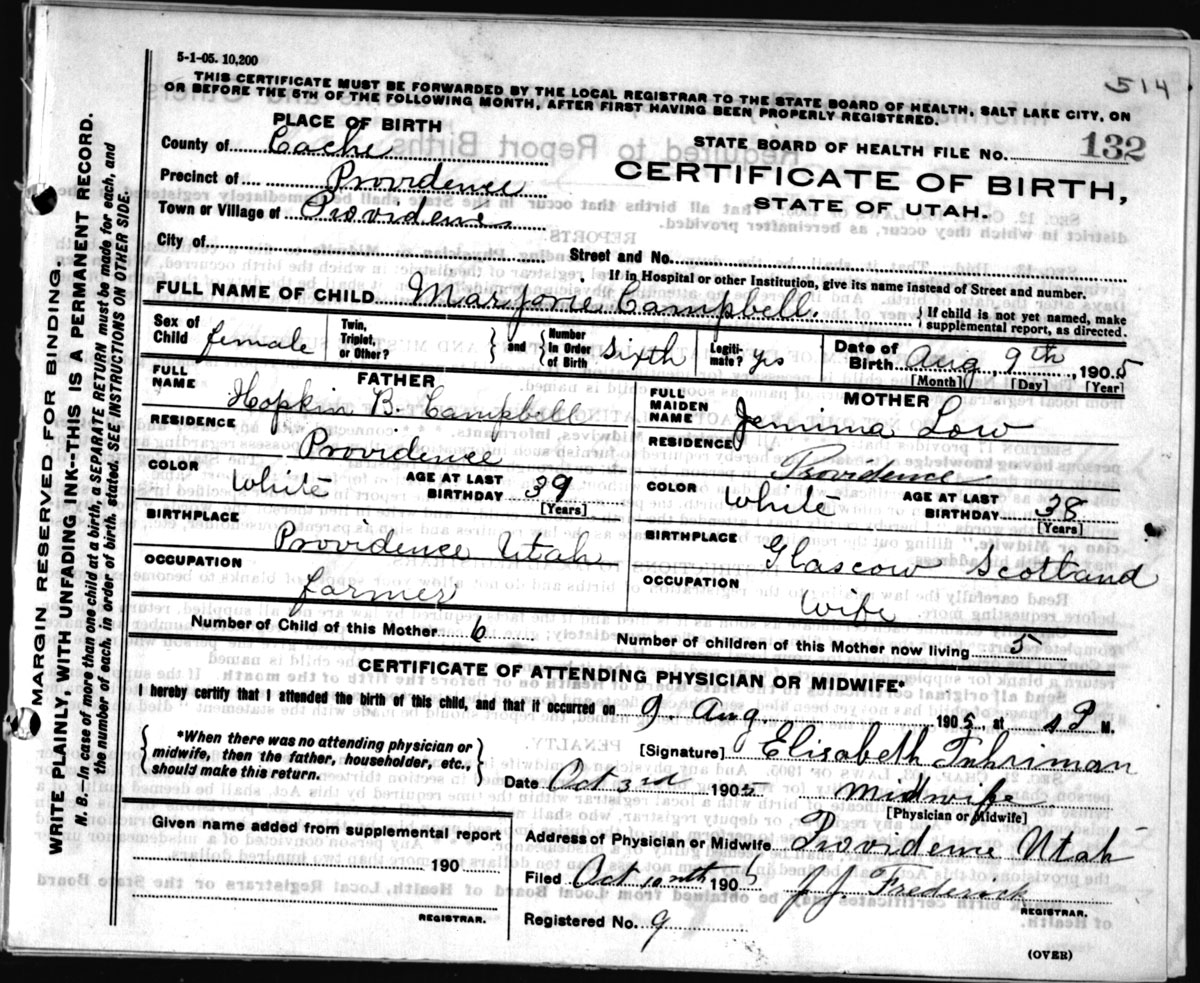 5-1-05. 10,200
514
THIS CERTIFICATE MUST BE FORWARDED BY THE LOCAL REGISTRAR TO THE STATE BOARD OF HEALTH, SALT LAKE CITY, ON
OR BEFORE THE 5TH OF THE FOLLOWING MONTH, AFTER FIRST HAVING BEEN PROPERLY REGISTERED.
PLACE OF BIRTH
STATE BOARD OF HEALTH FILE NO. 132
County of Cache
CERTIFICATE OF BIRTH,
Precinct of Providence
STATE OF UTAH.
Town or Village of Providence
City of Street and No.
If in Hospital or other Institution, give its name instead of Street and number.
FULL NAME OF CHILD Marjorie Campbell. { If child is not yet named, make
supplemental report, as directed.
Sex of Child female
Twin, Triplet, or Other? } and { Number in Order of Birth Sixth
Legiti- mate? yes
Date of Birth Aug 9th, 1905
[Month] [Day] [Year]
FATHER
FULL NAME Hopkin B. Campbell
RESIDENCE Providence
COLOR White AGE AT LAST BIRTHDAY 39
[Years]
BIRTHPLACE Providence Utah
OCCUPATION farmer
MOTHER
FULL MAIDEN NAME Jemima Low
RESIDENCE Providence
COLOR White AGE AT LAST BIRTHDAY 38
[Years]
BIRTHPLACE Glascow Scotland
OCCUPATION wife
Number of Child of this Mother 6 Number of children of this Mother now living 5
CERTIFICATE OF ATTENDING PHYSICIAN OR MIDWIFE*
I hereby certify that I attended the birth of this child, and that it occurred on 9 Aug. 1905, at M.
{ *When there was no attending physician or
midwife, then the father, householder, etc.,
should make this return. }
[Signature] Elisabeth
Date Oct 1905. Midwife
[Physician or Midwife]
Given name added from supplemental report
190
REGISTRAR.
Address of Physician or Midwife Providence Utah
Filed Oct 10th 1905 J J Frederick
REGISTRAR.
Registered No. 9
(OVER)
MARGIN RESERVED FOR BINDING
WRITE PLAINLY, WITH UNFADING INK--THIS IS A PERMANENT RECORD.
N. B.--In case of more than one child at a birth, a SEPARATE RETURN must be made for each, and
the number of each, in order of birth, stated. SEE INSTRUCTIONS ON OTHER SIDE.